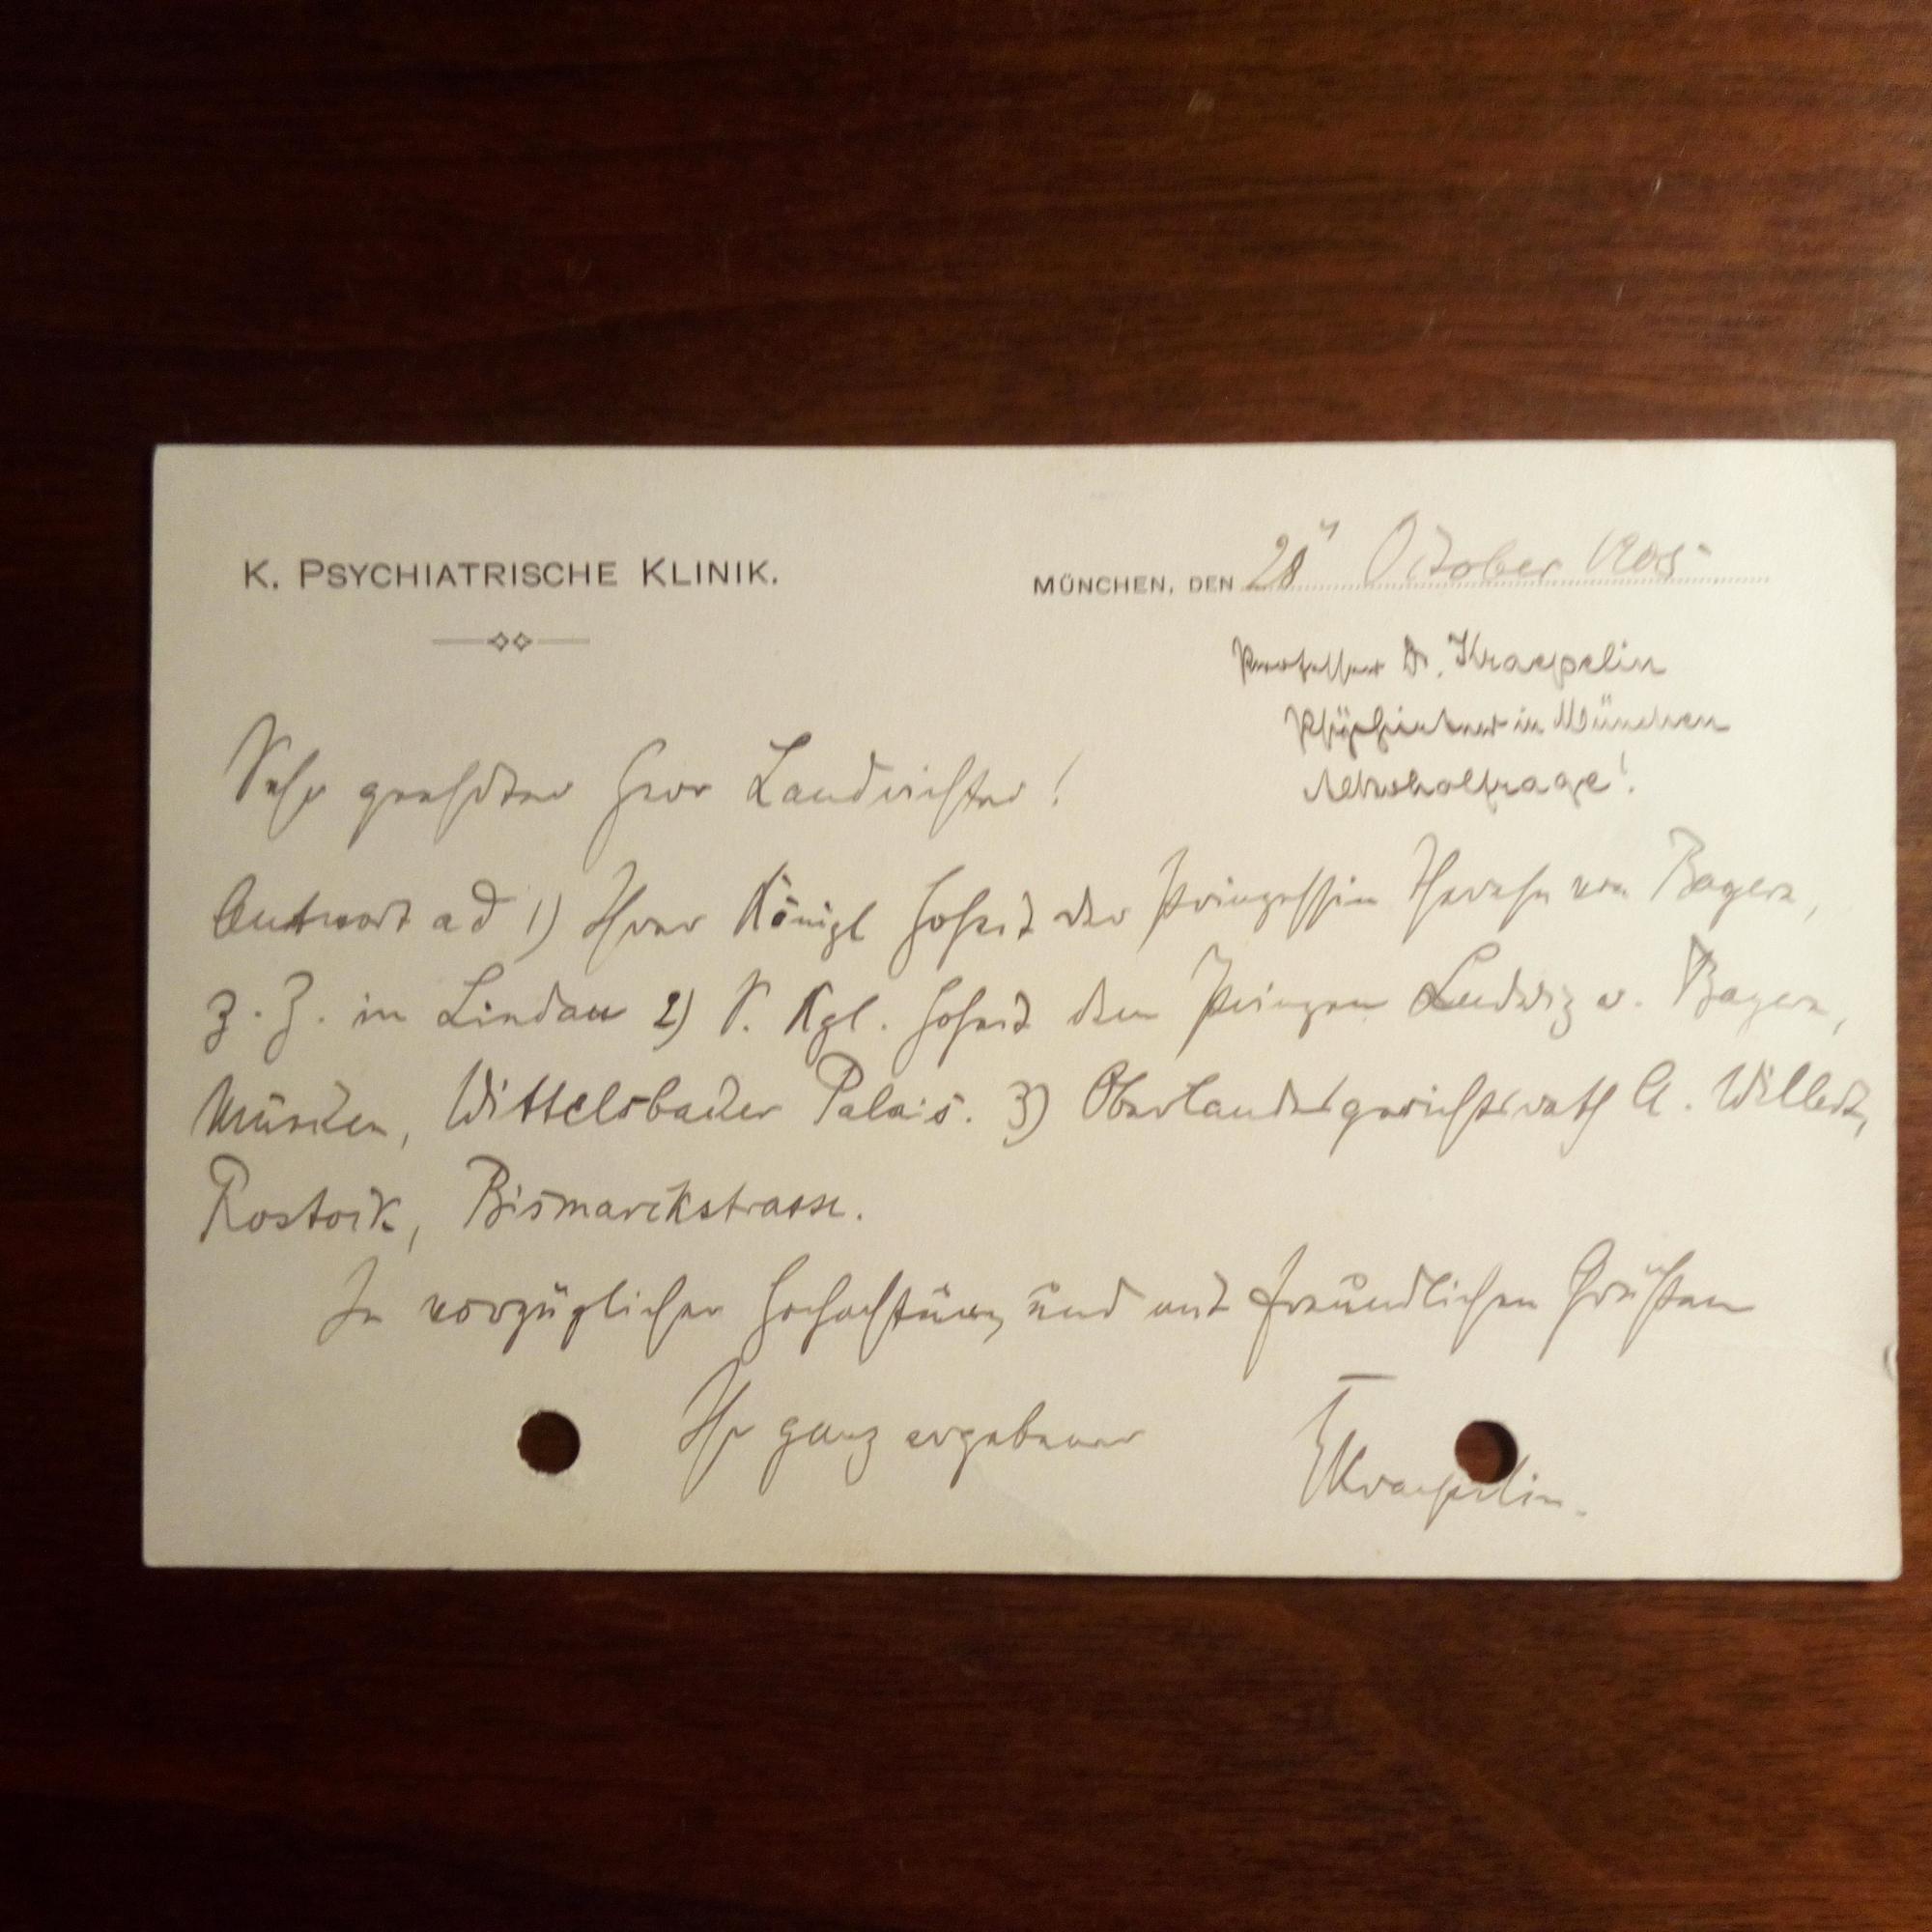 K. PSYCHIATRISCHE KLINIK.
MÜNCHEN, DEN 28 October 1905
Professor Dr. Kraepelin
Psychiater in München
Alkoholfrage!
Sehr geehrter Herr Landrichter!
Antwort ad 1) Ihrer Königl Hoheit der Prinzessin Therese von Bayern,
z. Z. in Lindau 2) S. Kgl. Hoheit dem Prinzen Ludwig v. Bayern,
München, Wittelsbacher Palais. 3) Oberlandesgerichtsrath A.
Rostock, Bismarckstrasse.
In vorzüglicher Hochachtung und mit freundlichen Grüßen
Ihr ganz ergebener
EKraepelin.